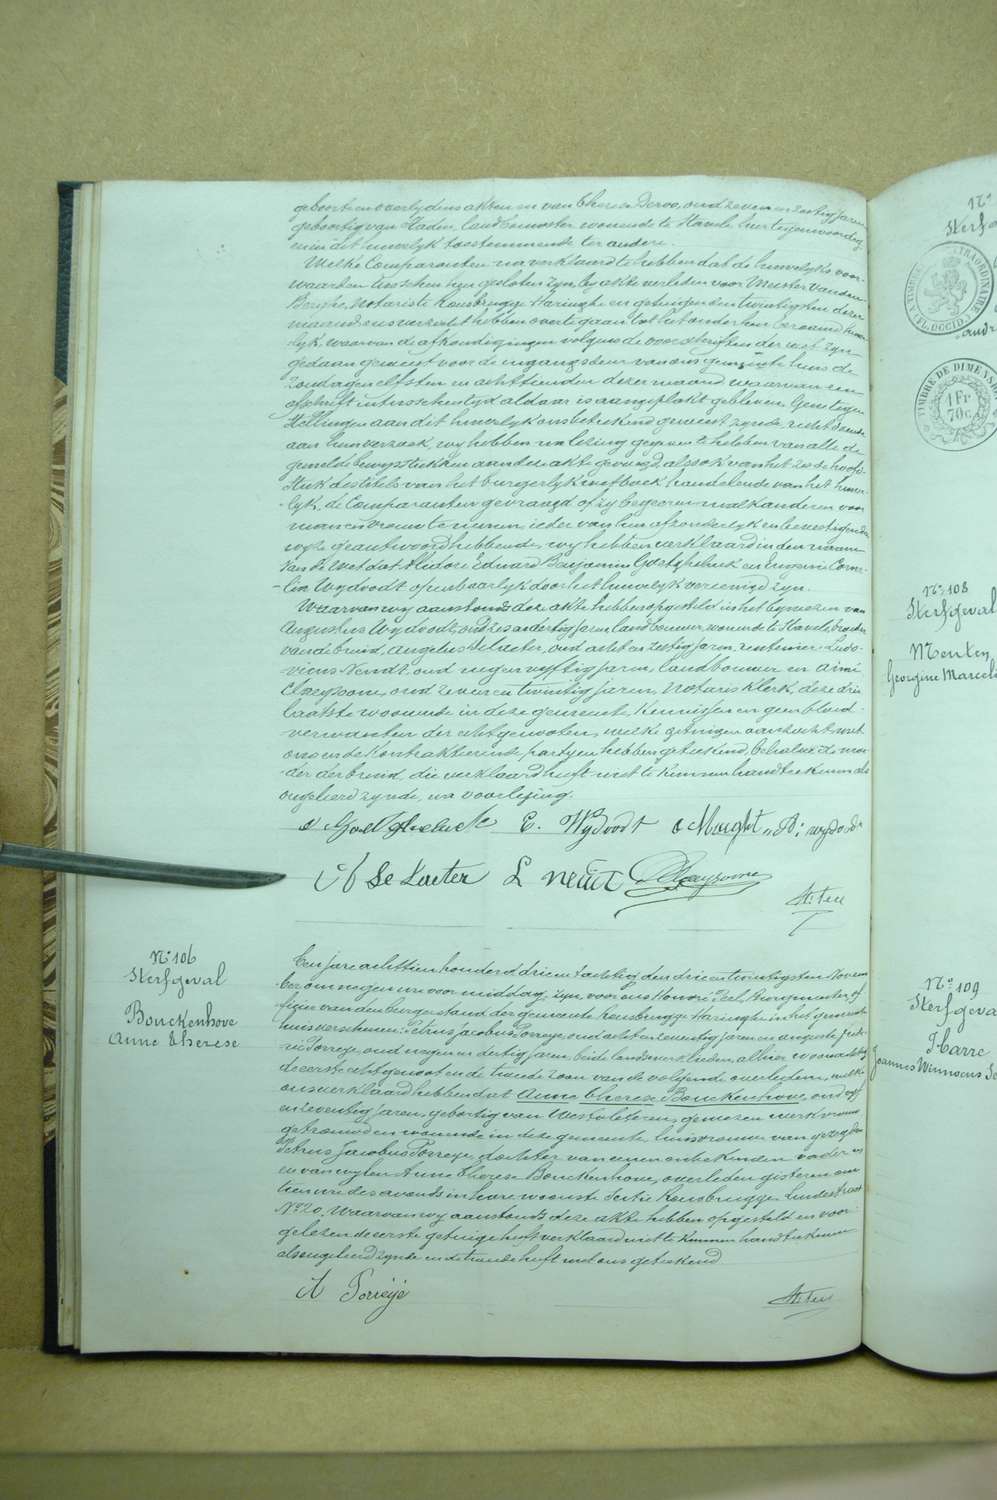 geboorte en overlydens akten en van Therese Devos, oud zeven en zestig jaren
geboortig van Staden, landbouwster wonende te Stavele hier tegenwoordig
en in dit huwelyk toestemmende ter andere.
Welke Comparanten na verklaard te hebben dat de huwelyks voor-
waarden tusschen hen gesloten zyn by akte verleden voor Meester Vanden
Berghe, Notaris te Rousbrugge Haringhe en getuigen den twintigsten dezer
maand, ons verzocht hebben over te gaan tot het onder hen beraamd huwe-
lyk, waarvan de afkondigingen volgens de voorschriften der wet zyn
gedaan geweest voor de ingangsdeur van ons gemeente huis de
zondagen elfsten en achttienden dezer maand, waarvan een
afschrift intusschentyd aldaar is aangeplakt gebleven. Geene tegen-
stellingen aan dit huwelyk ons beteekend geweest zynde, recht doende
aan hun verzoek, wy hebben na lezing gegeven te hebben van alle de
gemelde bewysstukken aan deze akte gevoegd, alsook van het zesde hoofd-
stuk des titels van het burgerlyk wetboek, handelende van het huwe-
lyk, de Comparanten gevraagd of zy begeeren malkanderen voor
man en vrouw te nemen, ieder van hen afzonderlyk en bevestigender
wyze geantwoord hebbende, wy hebben verklaard in den naam
van de Wet dat Eduard Benjamin en Eugenie Corne-
lia Wydoodt openbaarlyk door het huwelyk vereenigd zyn.
Waarvan wy aanstonds deze akte hebben opgesteld in het bywezen van
Augustus Wydoodt, oud zes en dertig jaren, landbouwer, wonende te Stavele, broeder
van de bruid, Angelus De Laeter, oud acht en zestig jaren, rentenier, Ludo-
vicus Neudt, oud negen vyftig jaren, landbouwer en Aimé
Claeysoone, oud zeven en twintig jaren, Notaris klerk, deze drie
laatste woonende in deze gemeente, kennissen en geen bloed-
verwanten der echtgenooten, welke getuigen aanstonds met
ons en de kontrakteerende partyen hebben geteekend, behalve de moe-
der der bruid, die verklaard heeft niet te kunnen handteekenen als
ongeleerd zynde, na voorlezing.
E. Wydoodt
L Neudt
N° 106
Sterfgeval
Bouckenhove
Anne Therese
Ten jare achttien honderd drie en tachtig den drie en twintigsten Novem-
ber om negen ure voor middag, zyn voor ons Honoré Peel, Burgmeester, of-
ficier van den burgerstand der gemeente Rousbrugge Haringhe in het gemeente
huis verschenen: Petrus Jacobus Porreye, oud acht en zeventig jaren en Auguste Fide-
le Porreye, oud negen en dertig jaren, beide landswerklieden, alhier woonachtig,
de eerste echtgenoot en de tweede zoon van de volgende overledene, welke
ons verklaard hebben dat Anne Therese Bouckenhove, oud
en zeventig jaren, geboortig van Westvleteren, gewezen werkvrouw
getrouwd en wonende in deze gemeente, huisvrouw van gezegden
Petrus Jacobus Porreye, dochter van eenen onbekenden vader en
en van wylen Anne Therese Bouckenhove, overleden gisteren om
tien ure des avonds in hare woonste Sectie Rousbrugge, Lindestraat
N° 20. Waarvan wy aanstonds deze akte hebben opgesteld en voor-
gelezen de eerste getuige heeft verklaard niet te kunnen handteekenen
als ongeleerd zynde en de tweede heeft met ons geteekend
A Porreye
N°
TIMBRE EXTRAORDINAIRE
(FL. OCCID.)
TIMBRE DE DIMENS
1 Fr
70c.
N° 108
Sterfgeval
Georgine Marceli
N° 109
Sterfgeva